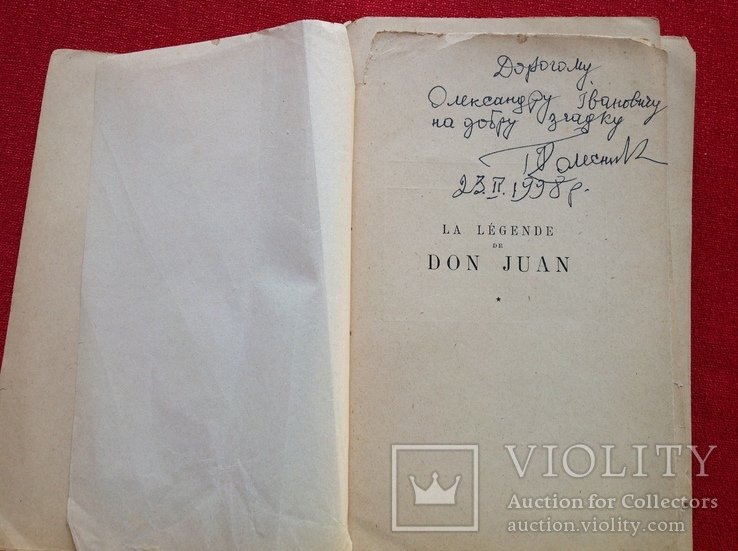 Дорогому
Олександру Івановичу
на добру згадку
23.II.1998 р.
LA LÉGENDE
DE
DON JUAN
*
VIOLITY
Auction for Collectors
auction.violity.com